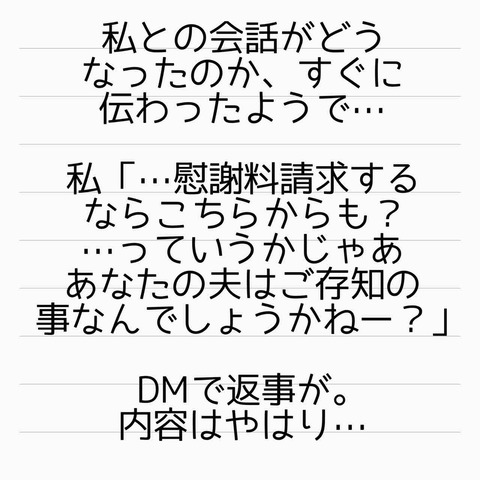 私との会話がどう
なったのか、すぐに
伝わったようで…
私「…慰謝料請求する
ならこちらからも？
…っていうかじゃあ
あなたの夫はご存知の
事なんでしょうかねー？」
DMで返事が。
内容はやはり…